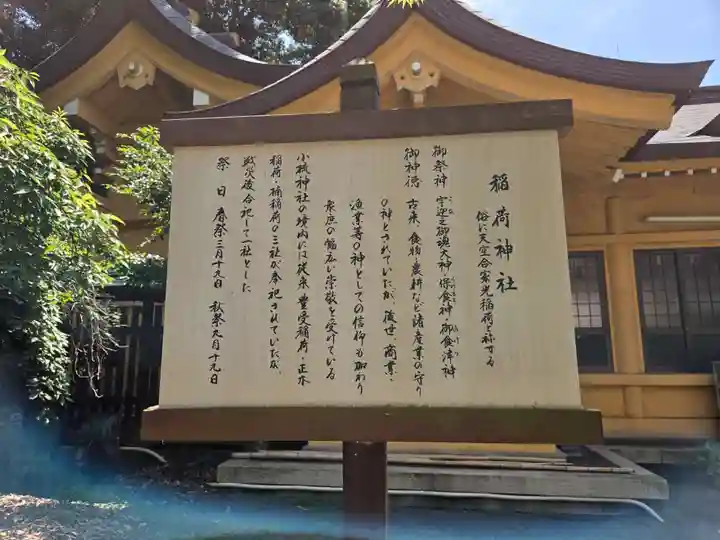 稲荷神社
俗に天空合家光稲荷と称せる
御祭神 宇迦之御魂大神・保食神・御食津神
御神徳 古来、食物・農耕など諸産業の守り
の神とされていたが、後世、商業・
漁業等の神としての信仰も加わり
衆庶の幅広い崇敬を受けている
小梳神社の境内には従来 豊受稲荷・正木
稲荷・楠稲荷の三社が奉祀されていたが、
戦災後合祀して一社とした
祭 日 春祭三月十九日 秋祭九月十九日